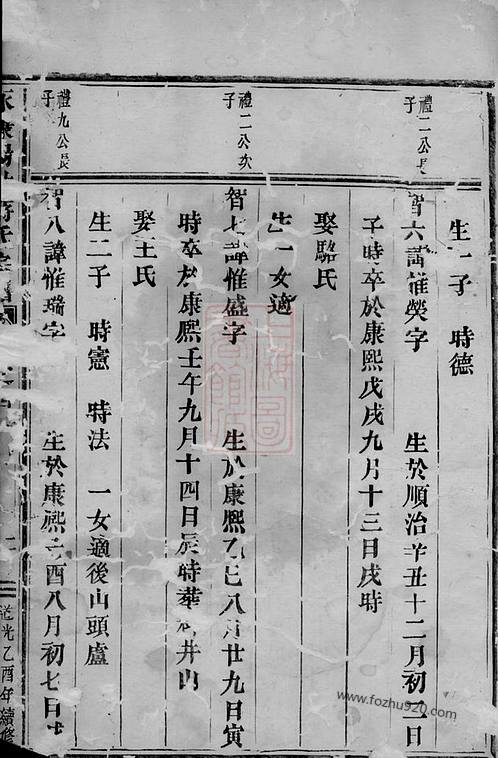 生一子 時德
禮二公長子
智六諱惟熒字 生於順治辛丑十二月初二日
子時卒於康熙戊戌九月十三日戌時
娶駱氏
生一女適
禮二公次子
智七諱惟盛字 生於康熙乙巳八月廿九日寅
時卒於康熙壬午九月十四日辰時葬 井山
娶王氏
生二子 時憲 時法 一女適後山頭盧
禮九公長子
智八諱惟瑞字 生於康熙辛酉八月初七日
道光乙酉年續修
www.fozhu920.com